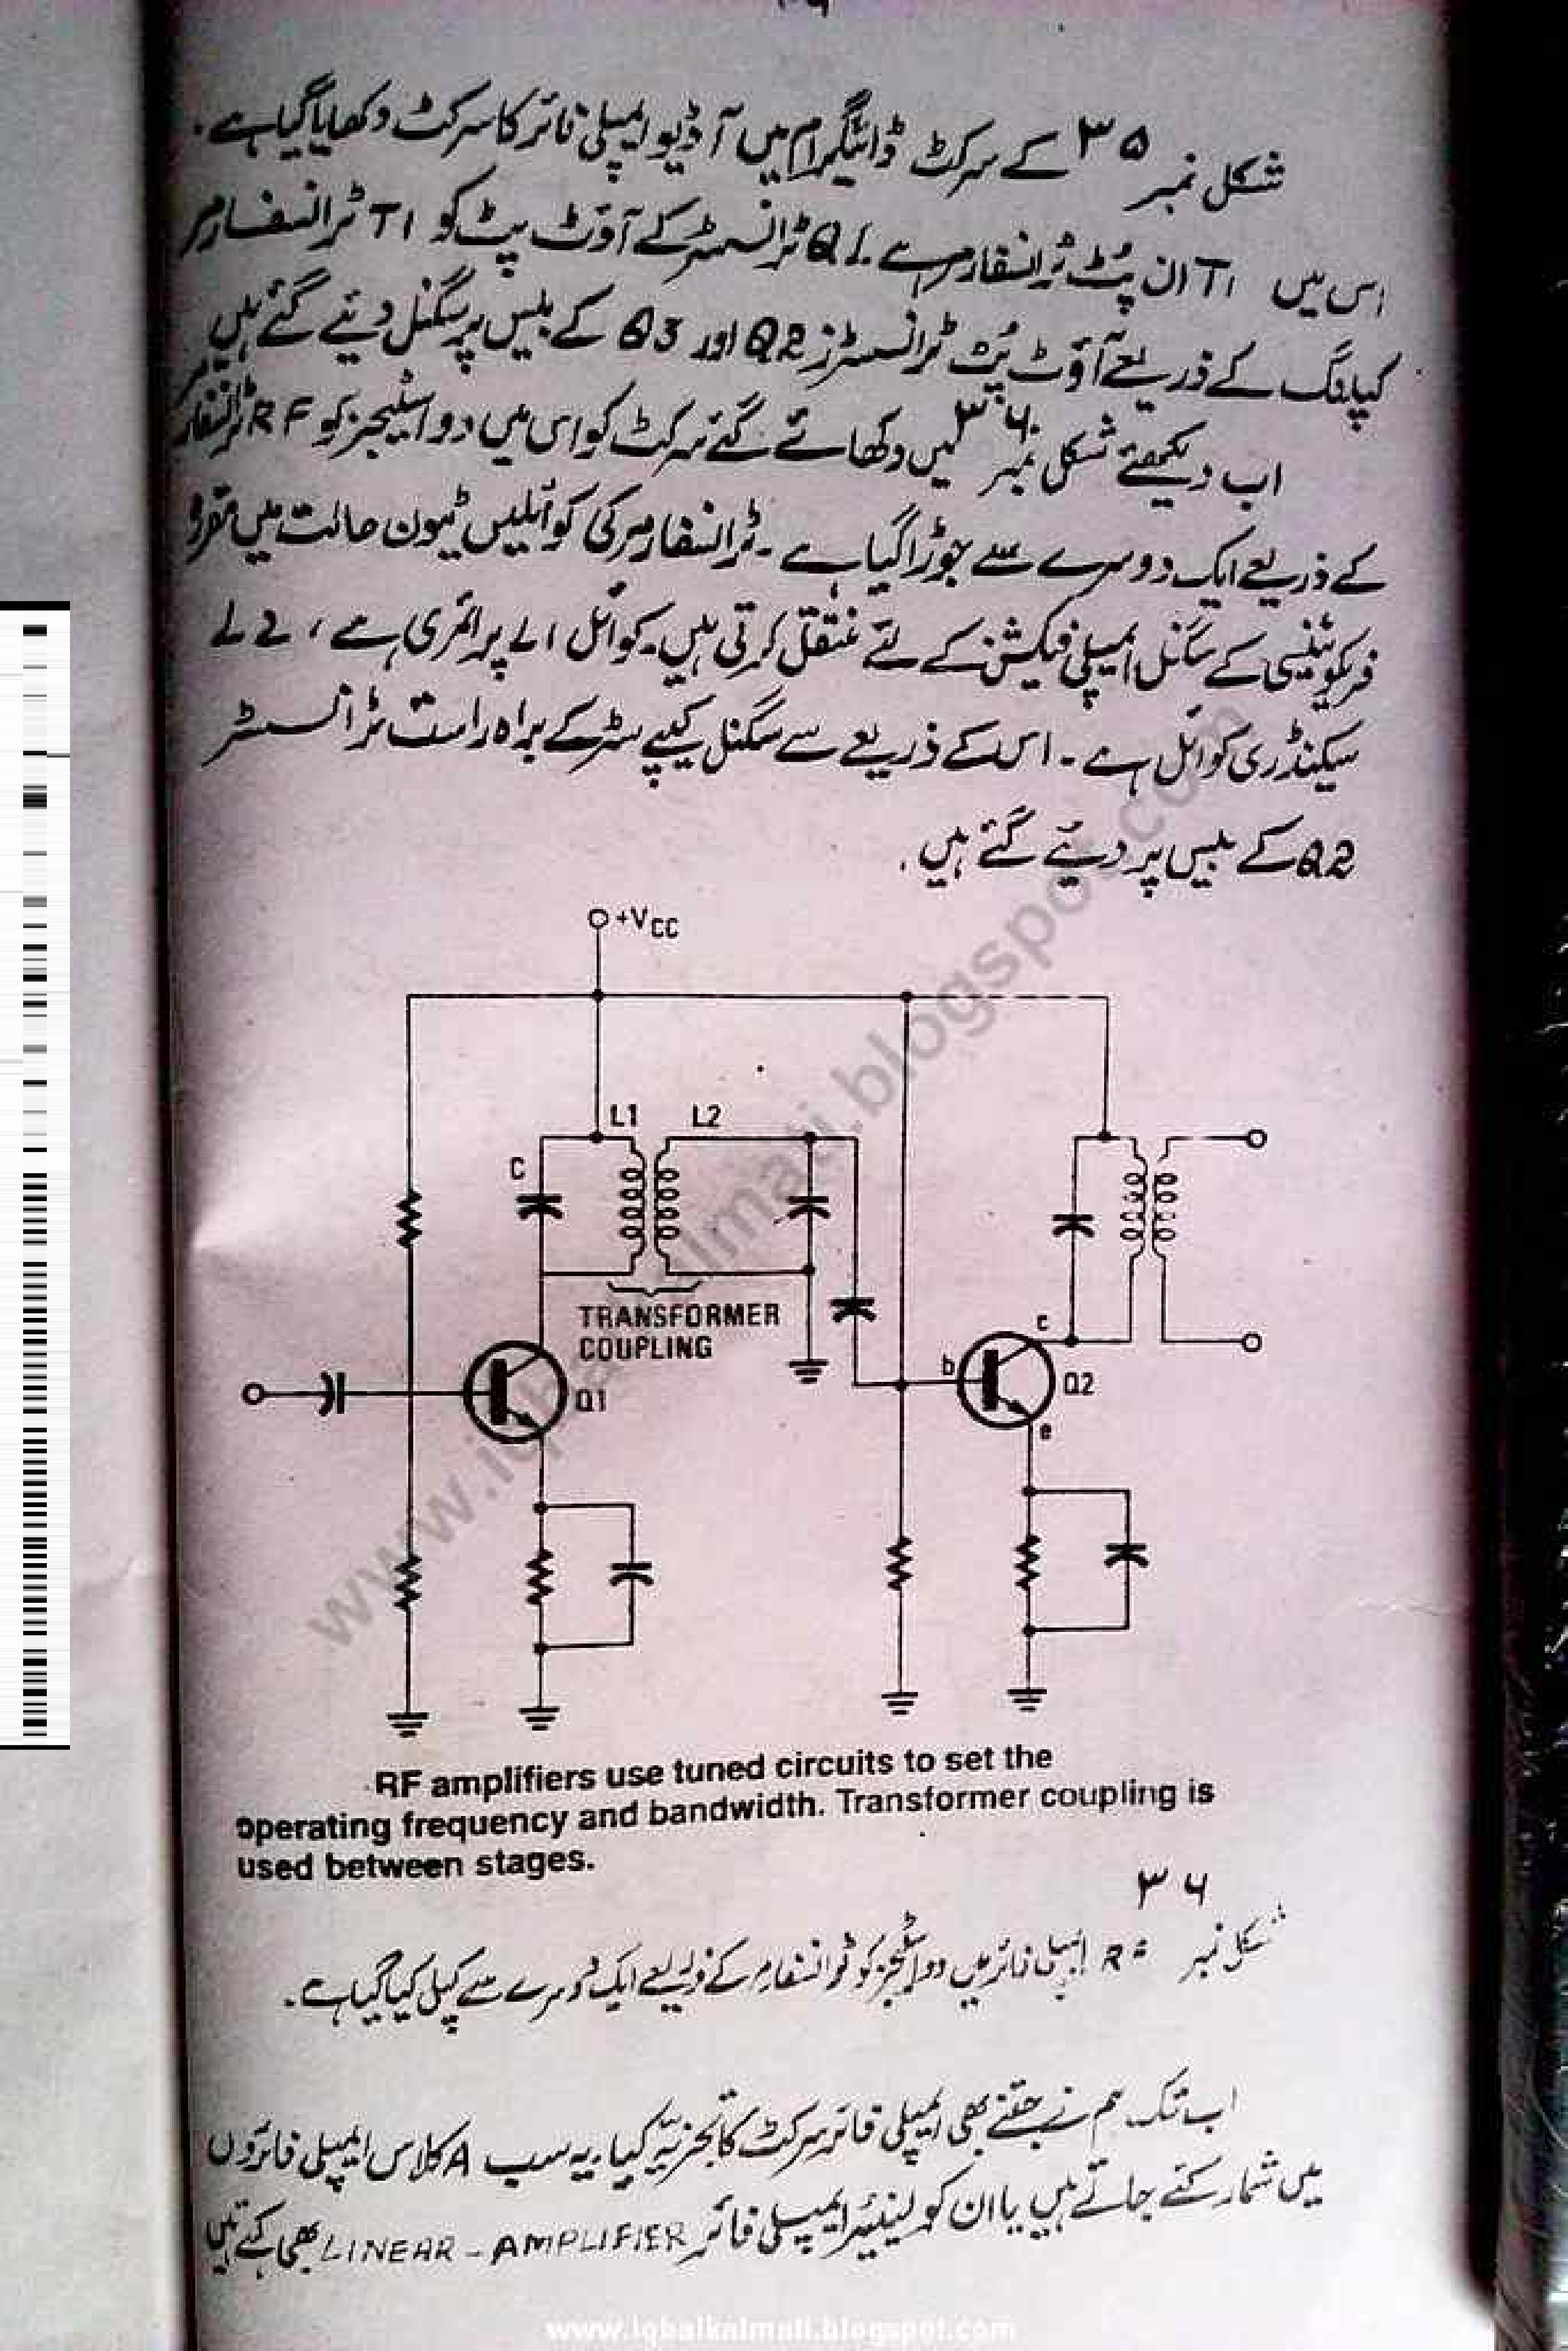 شکل نمبر ۳۵ کے سرکٹ ڈائیگرام میں آڈیو ایمپلی فائر کا سرکٹ دکھایا گیا ہے۔
اس میں T1 ان پُٹ ٹرانسفارمر ہے۔ Q1 ٹرانسسٹر کے آؤٹ پٹ کو T1 ٹرانسفارمر
کپلنگ کے ذریعے آؤٹ پُٹ ٹرانسسٹرز Q2 اور Q3 کے بیس پر سگنل دیئے گئے ہیں
اب دیکھئے شکل نمبر ۳۶ میں دکھائے گئے سرکٹ کو اس میں دو اسٹیجز کو RF ٹرانسفارمر
کے ذریعے ایک دوسرے سے جوڑا گیا ہے۔ ٹرانسفارمر کی کوائلیں ٹیون حالت میں مقررہ
فریکوئینسی کے سگنل ایمپلی فیکشن کے لئے منتقل کرتی ہیں۔ کوائل پرائمری ہے،
سیکنڈری کوائل ہے۔ اس کے ذریعے سے سگنل کیپے سٹر کے براہ راست ٹرانسسٹر
Q2 کے بیس پر دیئے گئے ہیں۔
+VCC
L1 L2
C
TRANSFORMER
COUPLING
c
b
Q1
Q2
e
RF amplifiers use tuned circuits to set the
operating frequency and bandwidth. Transformer coupling is
used between stages.
۳۶
شکل نمبر RF ایمپلی فائر میں دو اسٹیجز کو ٹرانسفارمر کے ذریعے ایک دوسرے سے کپل کیا گیا ہے۔
اب تک ہم نے جتنے بھی ایمپلی فائر سرکٹ کا تجزیہ کیا۔ یہ سب A کلاس ایمپلی فائروں
میں شمار کئے جاتے ہیں یا ان کو لینیئر ایمپلی فائر LINEAR - AMPLIFIER بھی کہتے ہیں
www.iqbalkalmati.blogspot.com
www.iqbalkalmati.blogspot.com